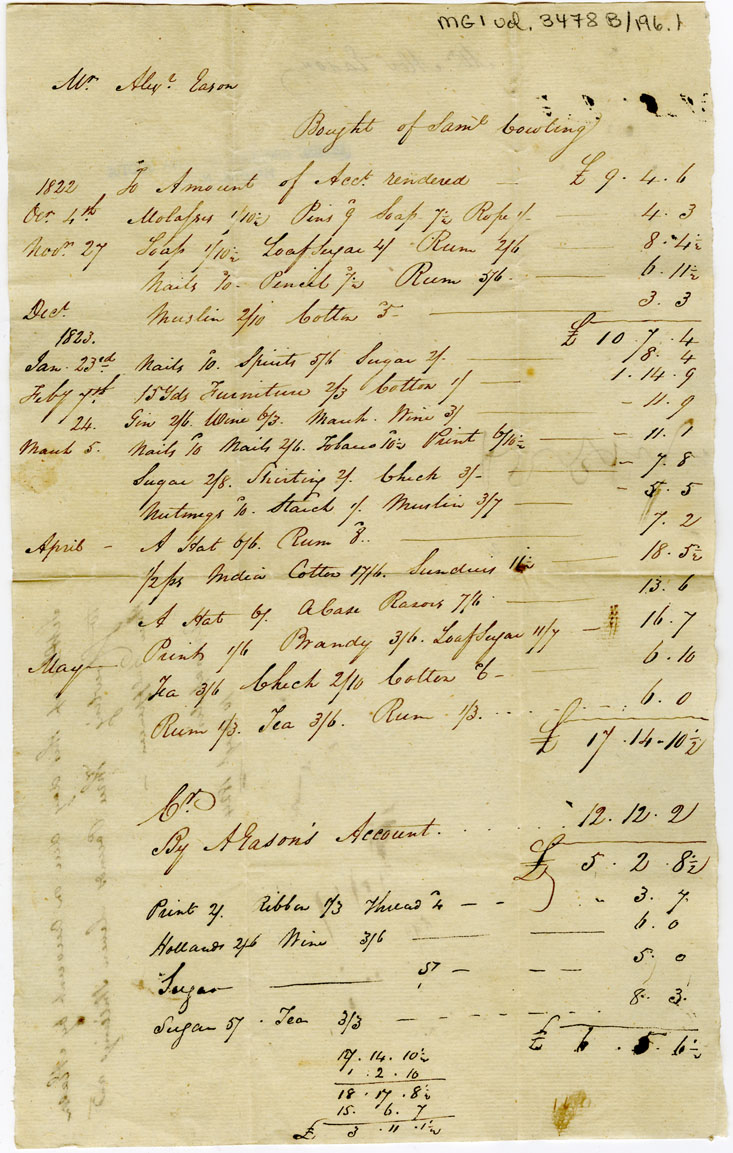 MG1 Vol. 3478 B/196.1
Mr. Alexr. Eason
Bought of Saml Cowling
1822 To Amount of Acct. rendered — £ 9. 4. 6
Octr. 4th Molasses 1/10½ Pins 9 Soap 7½ Rope 1/ — 4. 3
Novr. 27 Soap 1/10½ Loaf Sugar 4/ Rum 2/6 — 8. 4½
Nails /10 Pencil 7½ Rum 5/6 — 6. 11½
Decr. Muslin 2/10 Cotton 5 — 3. 3
£ 10 7. 4
1823.
Jan. 23rd Nails /10. Spirits 5/6 Sugar 2/. — 8. 4
Feby 7th 15 Yds Furniture 2/3 Cotton 1/ — 1. 14. 9
24. Gin 2/6. Wine 6/3. March. Wine 3/ — 11. 9
March 5. Nails /10 Nails 2/6. Tobacco 10½ Print 6/10½ — 11. 1
Sugar 2/8. Shirting 2/. Check 3/- — 7. 8
Nutmegs /10. Starch 1/. Muslin 3/7 — 5. 5
April — A Hat 6/6. Rum 8. — 7. 2
1/2 ps India Cotton 17/6. Sundries 11½ — 18. 5½
A Hat 6/. A Case Razors 7/6 — 13. 6
May — Print 1/6 Brandy 3/6. Loaf Sugar 11/7 — 16. 7
Tea 3/6 Check 2/10 Cotton /6 — 6. 10
Rum 1/3. Tea 3/6. Rum 1/3. 6. 0
£ 17. 14-10½
Cr.
By A Eason's Account. 12. 12. 2
£ 5. 2. 8½
Print 2/. Ribbon 1/3 Thread 4 — 3. 7
Hollands 2/6 Wine 3/6 — 6. 0
Sugar — 5/ — 5. 0
Sugar 5/. Tea 3/3 — 8. 3.
£ 6. 5. 6½
17. 14. 10½
1. 2. 10
18. 17. 8½
15. 6. 7
£ 3. 11. 1½